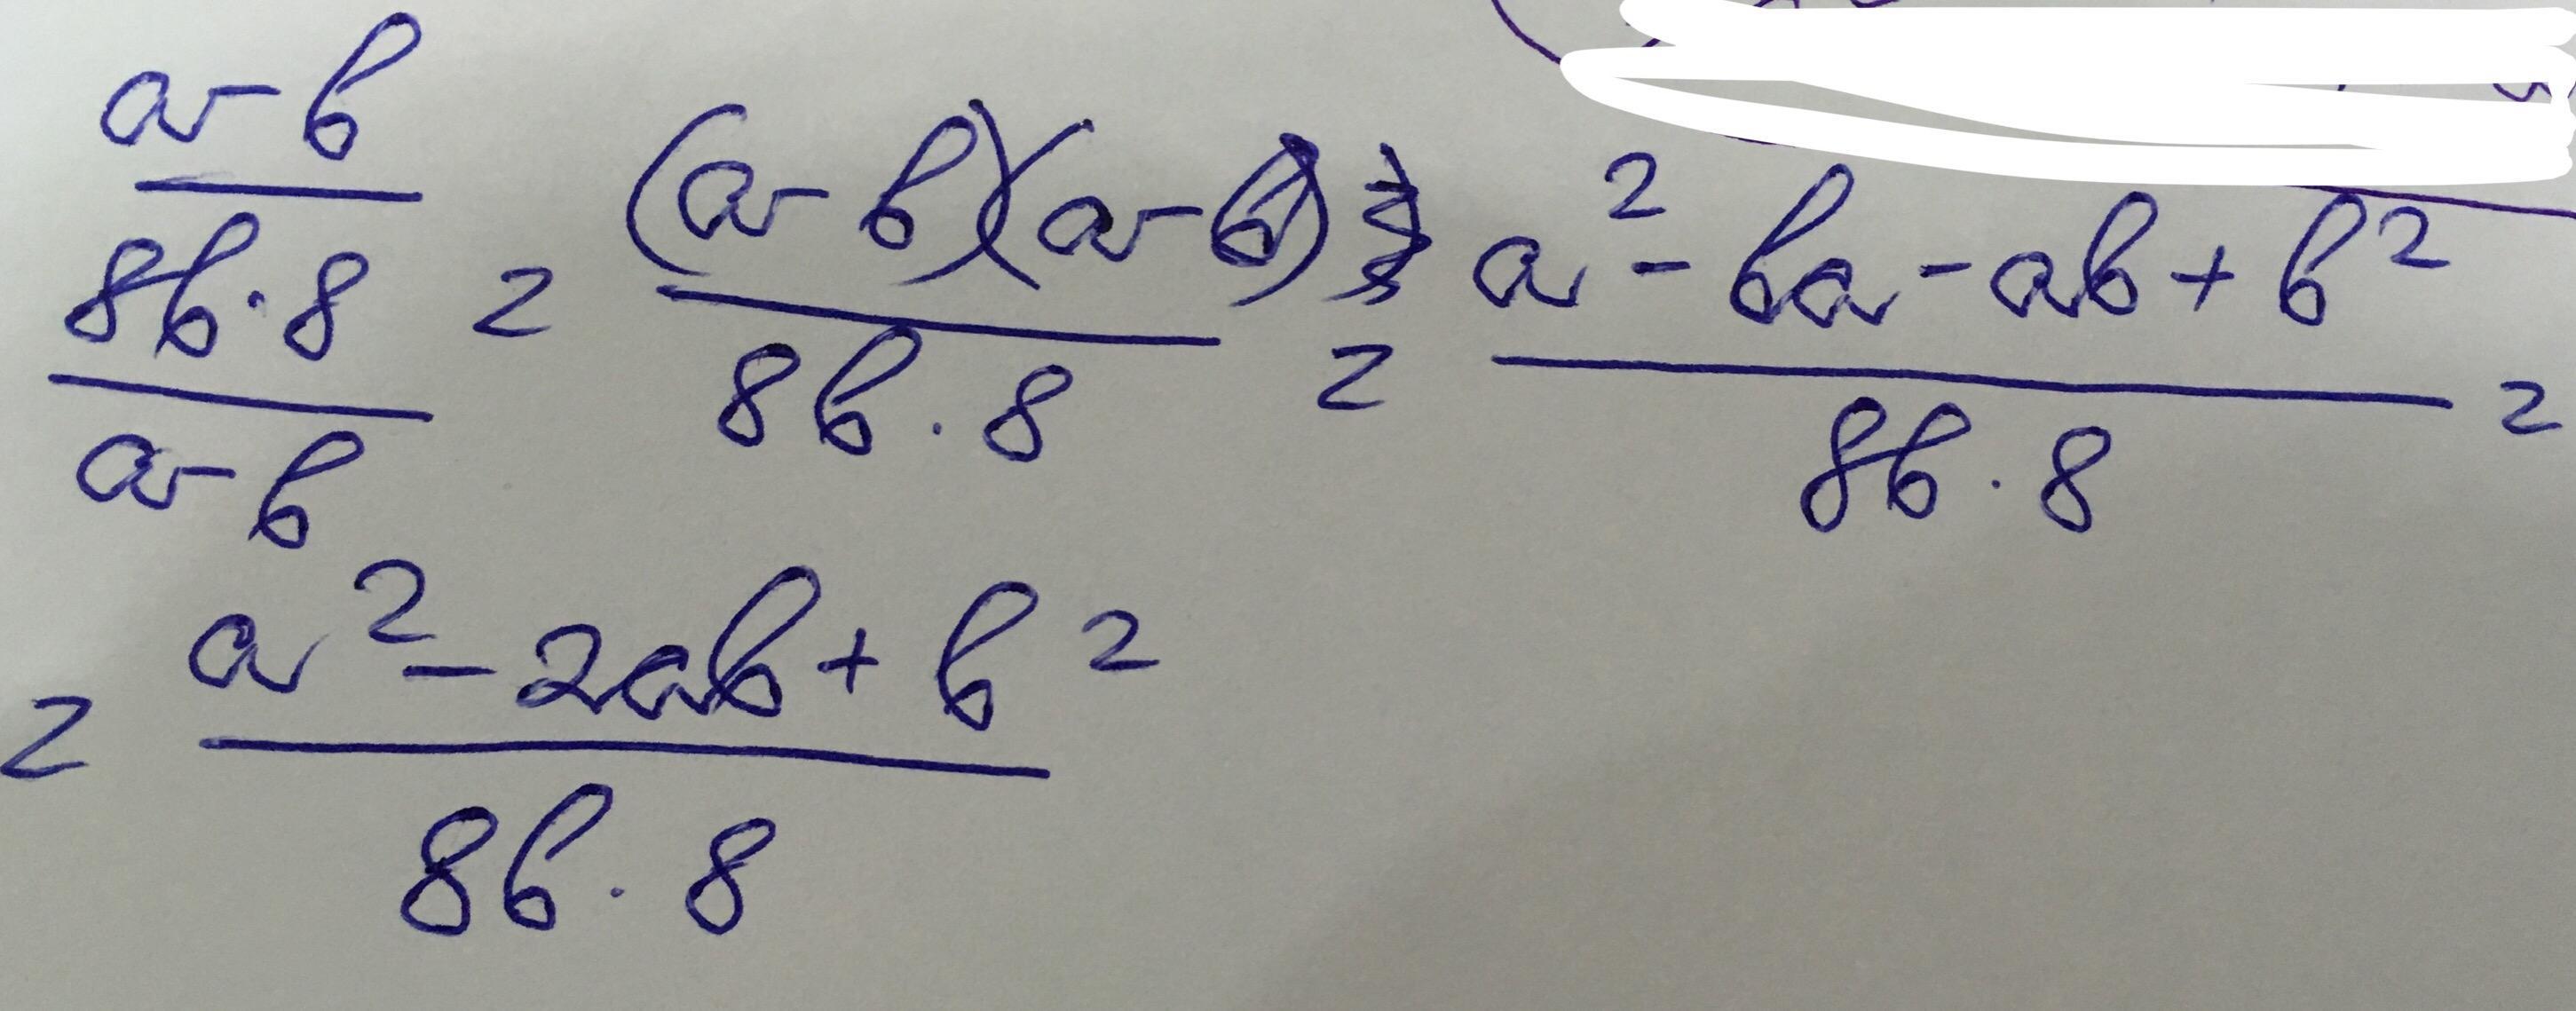 (a-b)/((8b·8)/(a-b)) = ((a-b)(a-b))/(8b·8) = (a²-ba-ab+b²)/(8b·8) =
= (a²-2ab+b²)/(8b·8)